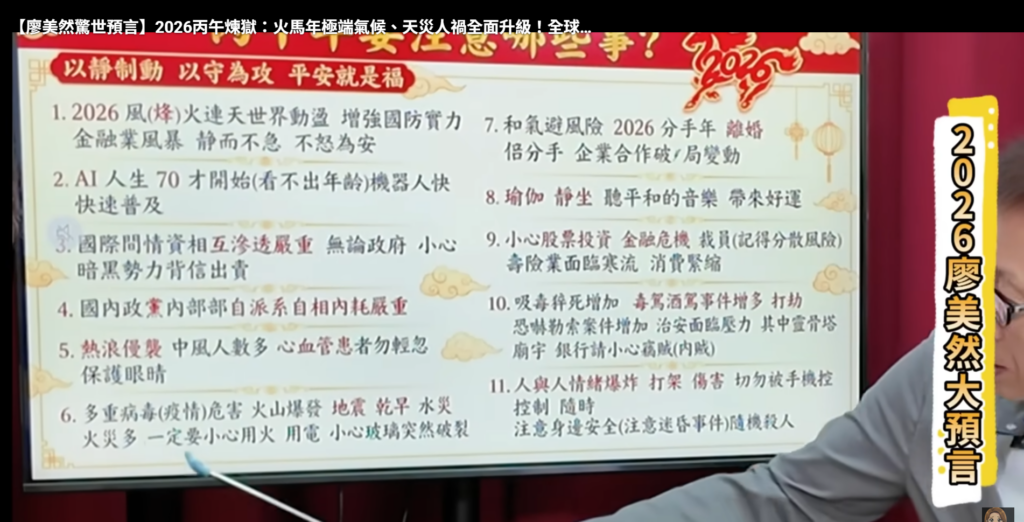 【廖美然驚世預言】2026丙午煉獄：火馬年極端氣候、天災人禍全面升級！全球...
要注意哪些事?
2026
以靜制動 以守為攻 平安就是福
1. 2026 風(烽)火連天世界動盪 增強國防實力
金融業風暴 靜而不急 不怒為安
2. AI 人生 70 才開始(看不出年齡)機器人快
快速普及
3. 國際間情資相互滲透嚴重 無論政府 小心
暗黑勢力背信出賣
4. 國內政黨內部部自派系自相內耗嚴重
5. 熱浪侵襲 中風人數多 心血管患者勿輕忽
保護眼睛
6. 多重病毒(疫情)危害 火山爆發 地震 乾旱 水災
火災多 一定要小心用火 用電 小心玻璃突然破裂
7. 和氣避風險 2026 分手年 離婚
倍分手 企業合作破局變動
8. 瑜伽 靜坐 聽平和的音樂 帶來好運
9. 小心股票投資 金融危機 裁員(記得分散風險)
壽險業面臨寒流 消費緊縮
10. 吸毒猝死增加 毒駕酒駕事件增多 打劫
恐嚇勒索案件增加 治安面臨壓力 其中靈骨塔
廟宇 銀行請小心竊賊(內賊)
11. 人與人情緒爆炸 打架 傷害 切勿被手機控
控制 隨時
注意身邊安全(注意迷昏事件)隨機殺人
2026廖美然大預言